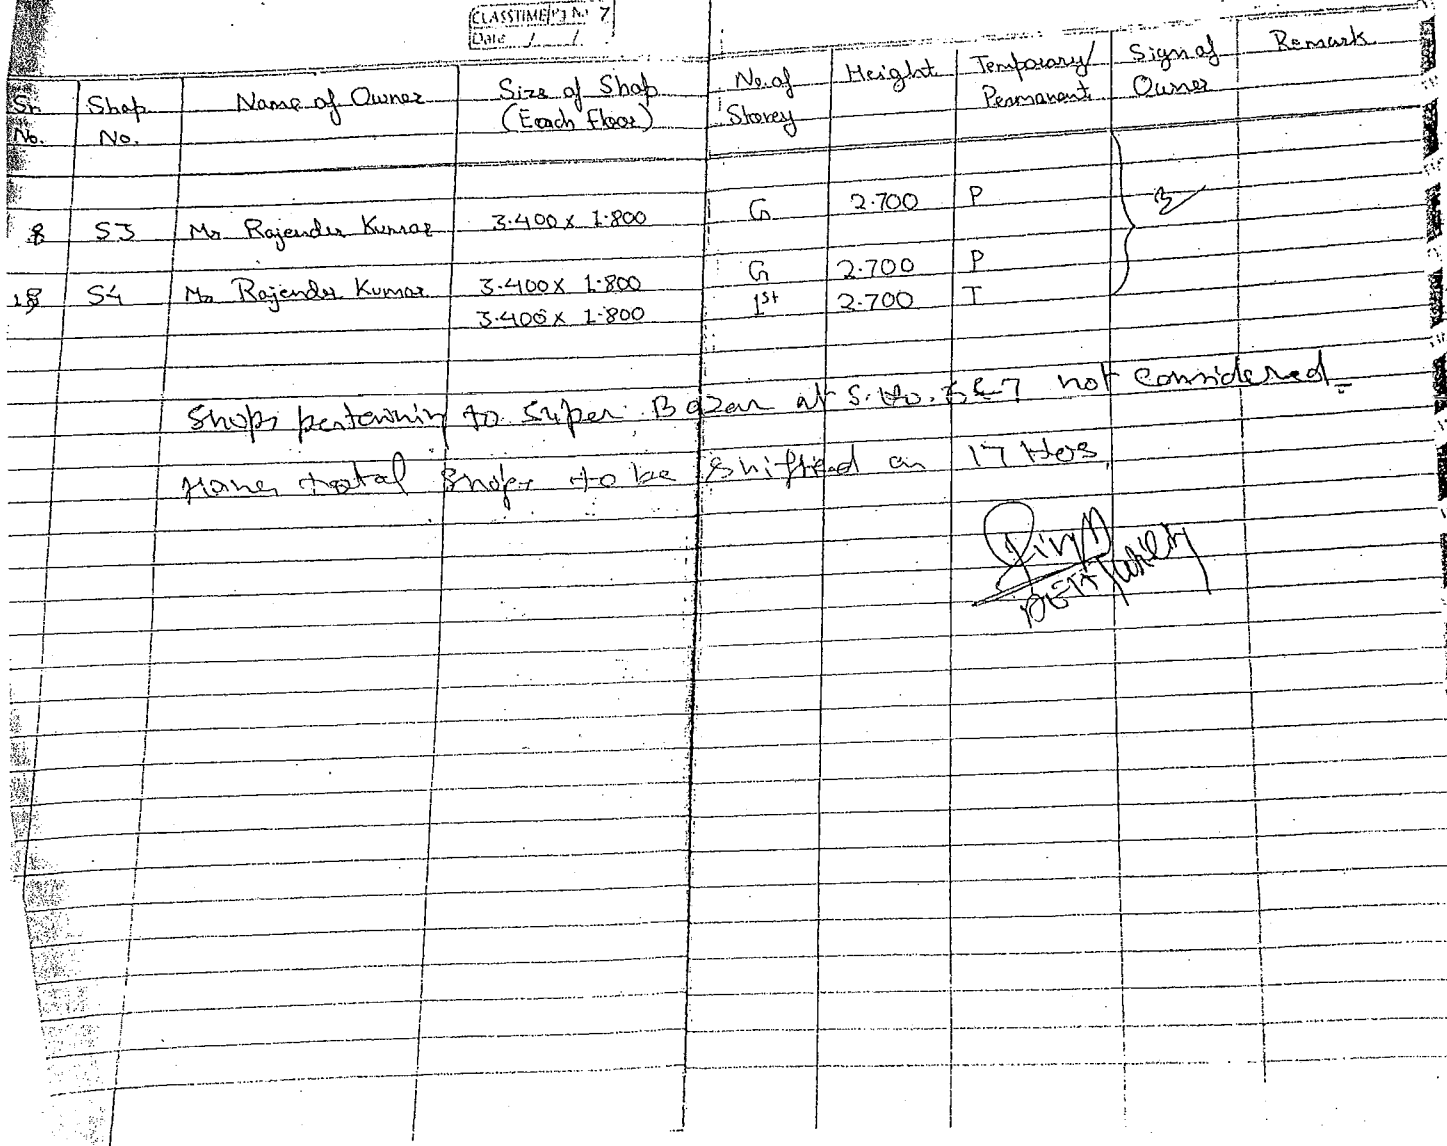 CLASSTIME Pg No. 7
Date / /
Sr. No. Shop No. Name of Owner Size of Shop (Each Floor) No. of Storey Height Temporary/Permanent Sign of Owner Remark
8 S3 Mr Rajender Kumar 3.400 x 1.800 G 2.700 P
S4 Mr Rajender Kumar 3.400 x 1.800 G 2.700 P
3.400 x 1.800 1st 2.700 T
Shops pertaining to Super Bazar at S.No. & 7 not considered
total shops to be shifted on 17 Nos.